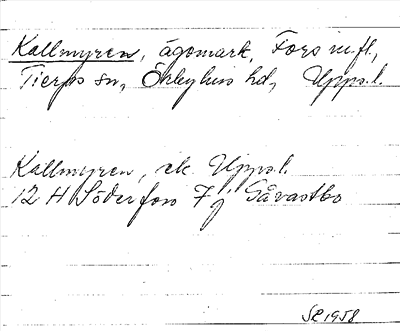 Kallmyren, ägomark, Fors m.fl.,
Tierps sn, Örbyhus hd, Upps.l.
Kallmyren, ek. Upps.l.
12 H Söderfors 7 j Gåvastbo
SL 1958